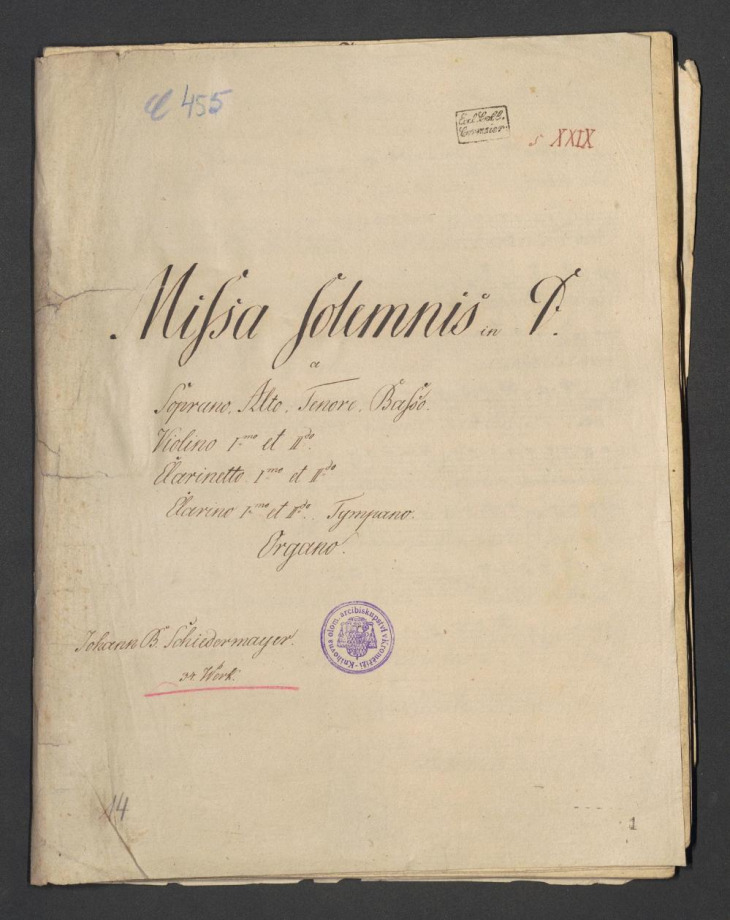 C 455
Eccl. Coll.
Cremsier
s XXIX
Missa Solemnis in D.
a
Soprano, Alto, Tenore, Basso.
Violino Imo et IIdo.
Clarinetto Imo et IIdo
Clarino Imo et IIdo. Tympano.
Organo.
Johann B. Schiedermayer.
Werk.
Knihovna olom. arcibiskupství v Kroměříži
14
1